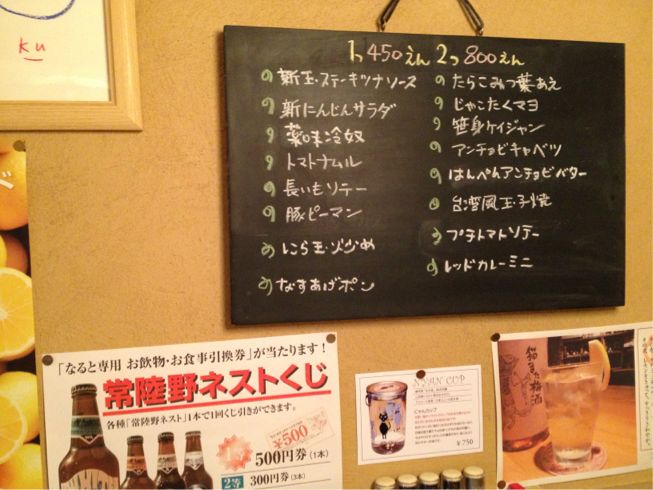 ku
1つ450えん 2つ800えん
新玉・ステーキツナソース
新にんじんサラダ
薬味冷奴
トマトナムル
長いもソテー
豚ピーマン
にら玉・ソ少め
なすあげポン
たらこみつ葉あえ
じゃこたくマヨ
笹身ケイジャン
アンチョビキャベツ
はんぺんアンチョビバター
台湾風玉子焼
プチトマトソテー
レッドカレーミニ
「なると専用 お飲物・お食事引換券」が当たります!
常陸野ネストくじ
各種「常陸野ネスト」1本で1回くじ引きができます。
¥500
500円券(1本)
2等 300円券(3本)
NYAN CUP
にゃんカップ
¥750
梅酒